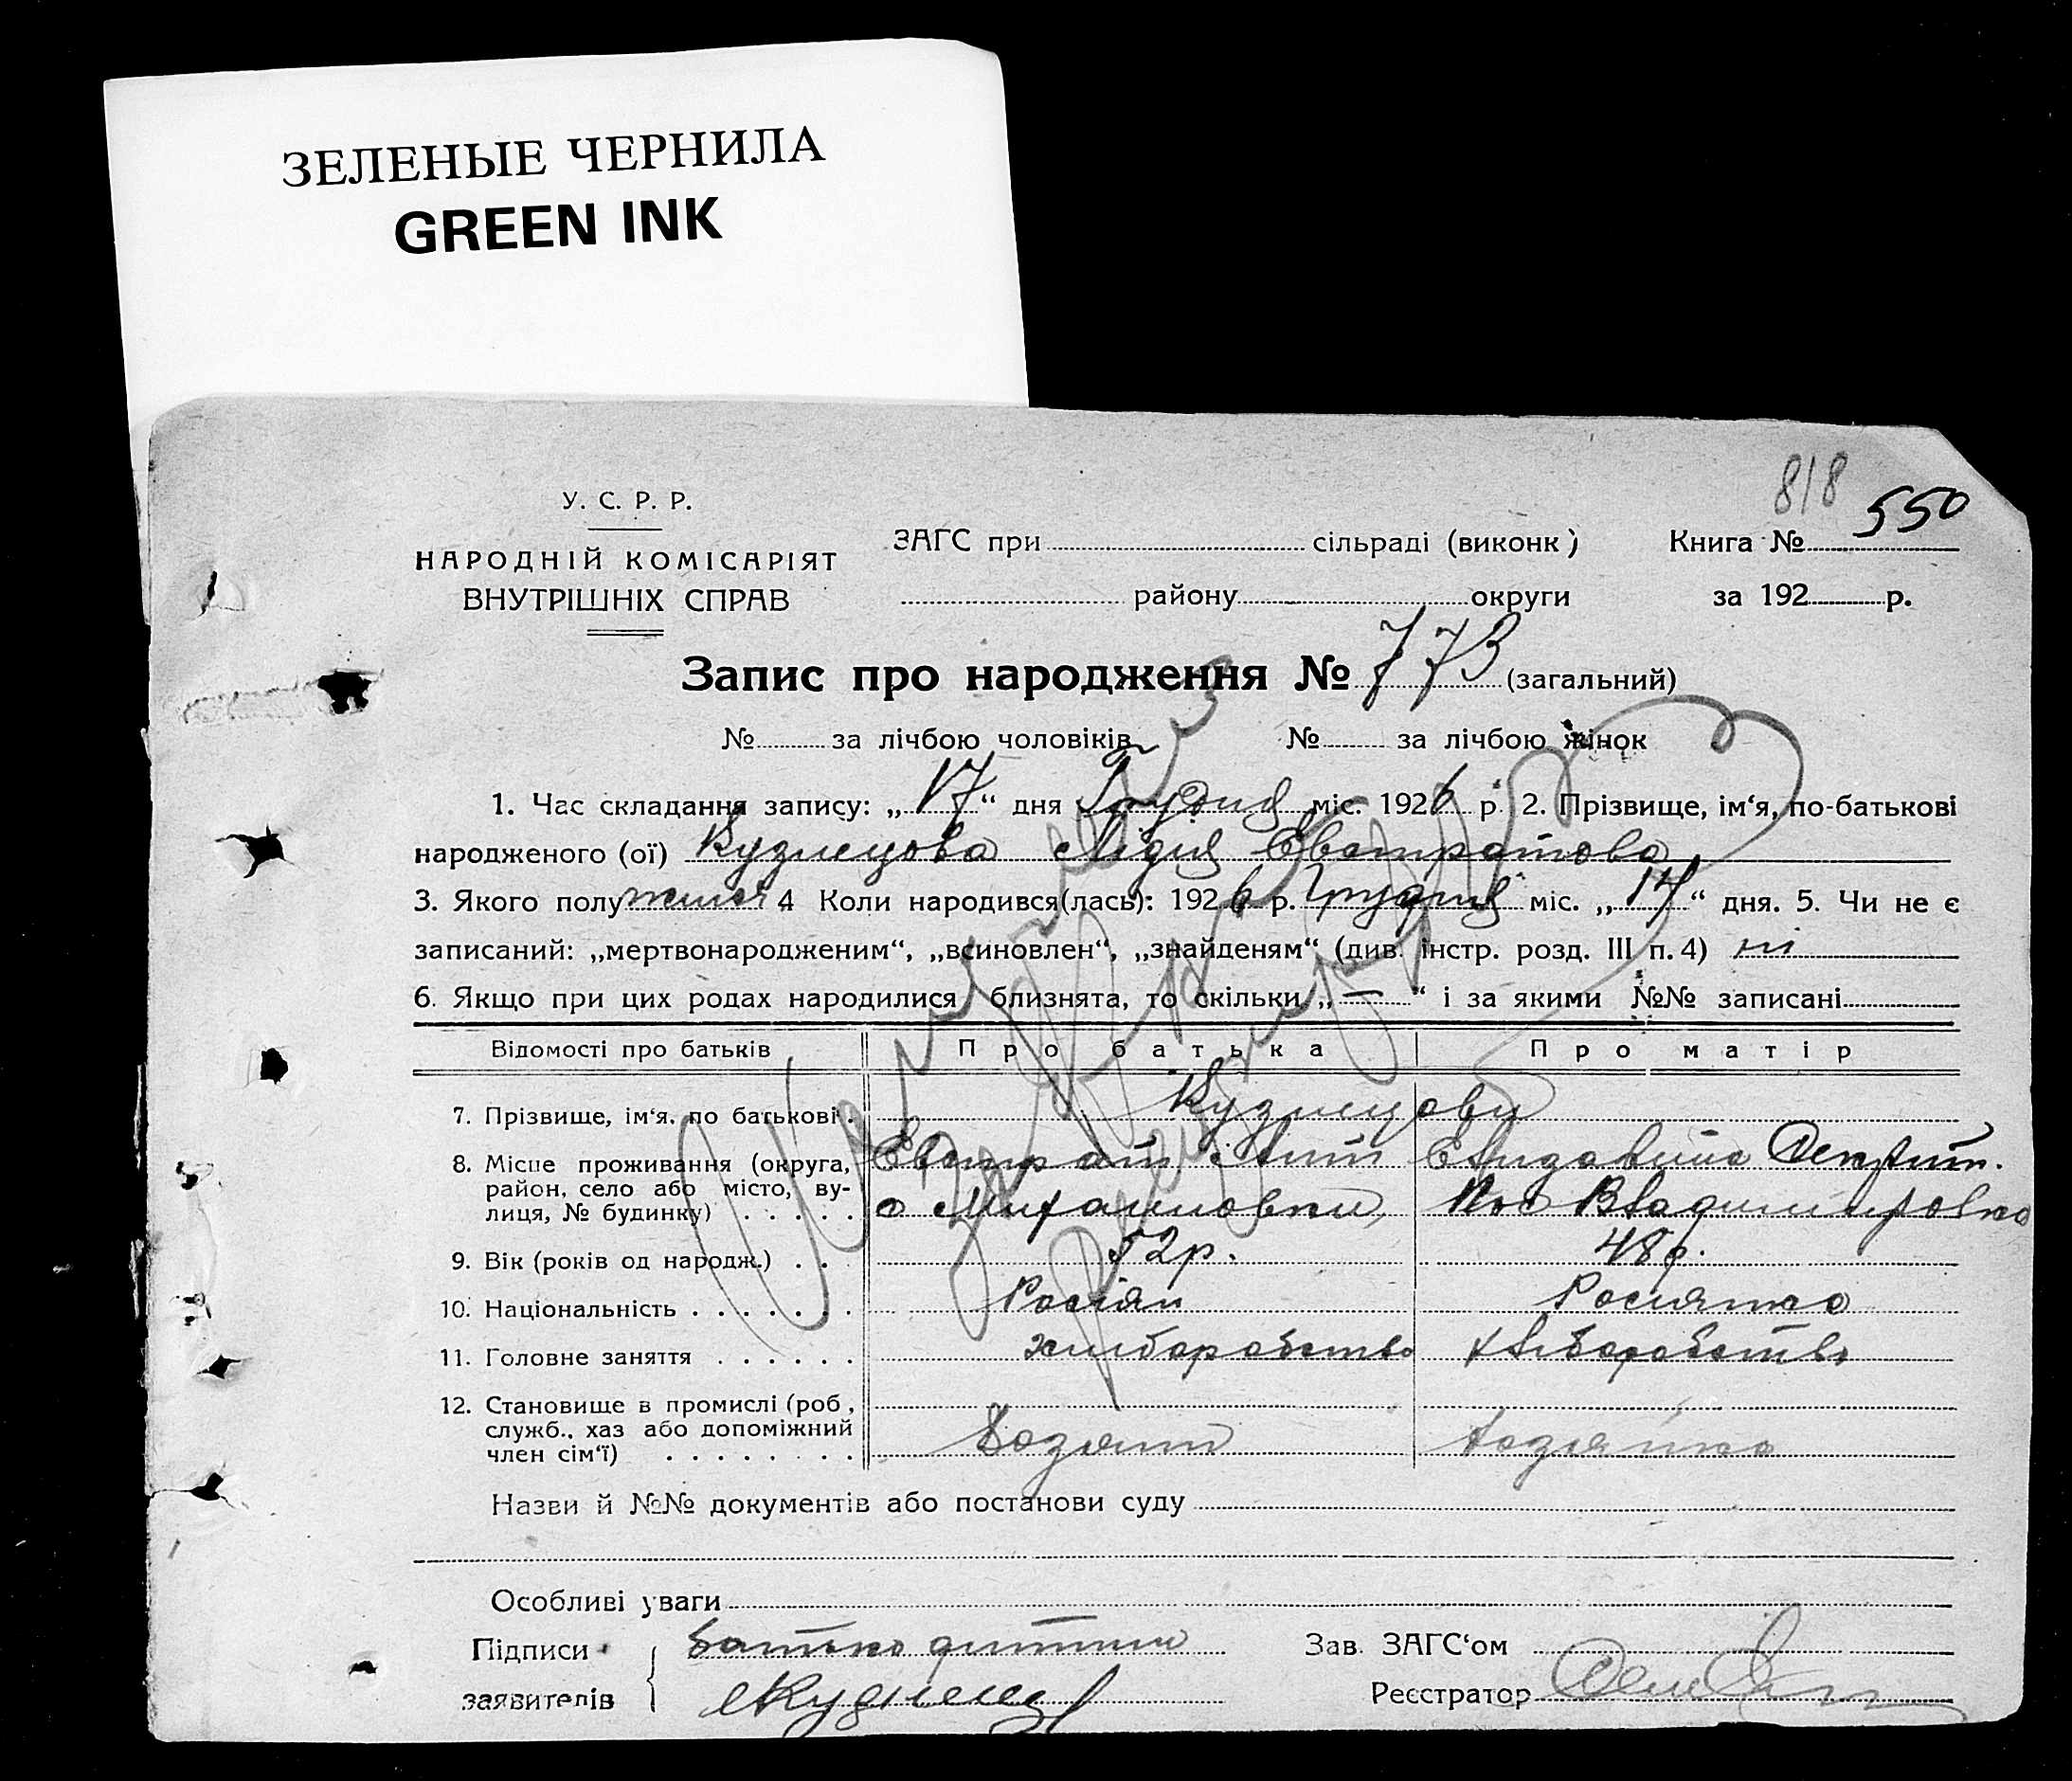 ЗЕЛЕНЫЕ ЧЕРНИЛА
GREEN INK
818
550
У. С. Р. Р.
НАРОДНІЙ КОМІСАРІЯТ
ВНУТРІШНІХ СПРАВ
ЗАГС при сільраді (виконк) Книга №
району округи за 192 р.
Запис про народження № 773 (загальний)
№ за лічбою чоловіків № за лічбою жінок
1. Час складання запису: „17“ дня Грудня міс. 1926 р. 2. Прізвище, ім‘я, по-батькові
народженого (ої) Кузнецова Лідия Евстратова
3. Якого полу 4 Коли народився(лась): 1926 р. Грудня міс. „14“ дня. 5. Чи не є
записаний: „мертвонародженим“, „всиновлен“, „знайденям“ (див. інстр. розд. III п. 4) ні
6. Якщо при цих родах народилися близнята, то скільки „—“ і за якими №№ записані
Відомості про батьків Про батька Про матір
7. Прізвище, ім‘я, по батькові Кузнецови
8. Місце проживання (округа, Евстрат Елизавета
район, село або місто, ву-
лиця, № будинку)
9. Вік (років од народж.) 52р. 48р.
10. Національність Росіян Росиянка
11. Головне заняття хліборобство хліборобство
12. Становище в промислі (роб,
служб., хаз або допоміжний
член сім‘ї) Хозяин хозяйка
Назви й №№ документів або постанови суду
Особливі уваги
Підписи батько дитини Зав. ЗАГС‘ом
заявителів Кузнец Реєстратор